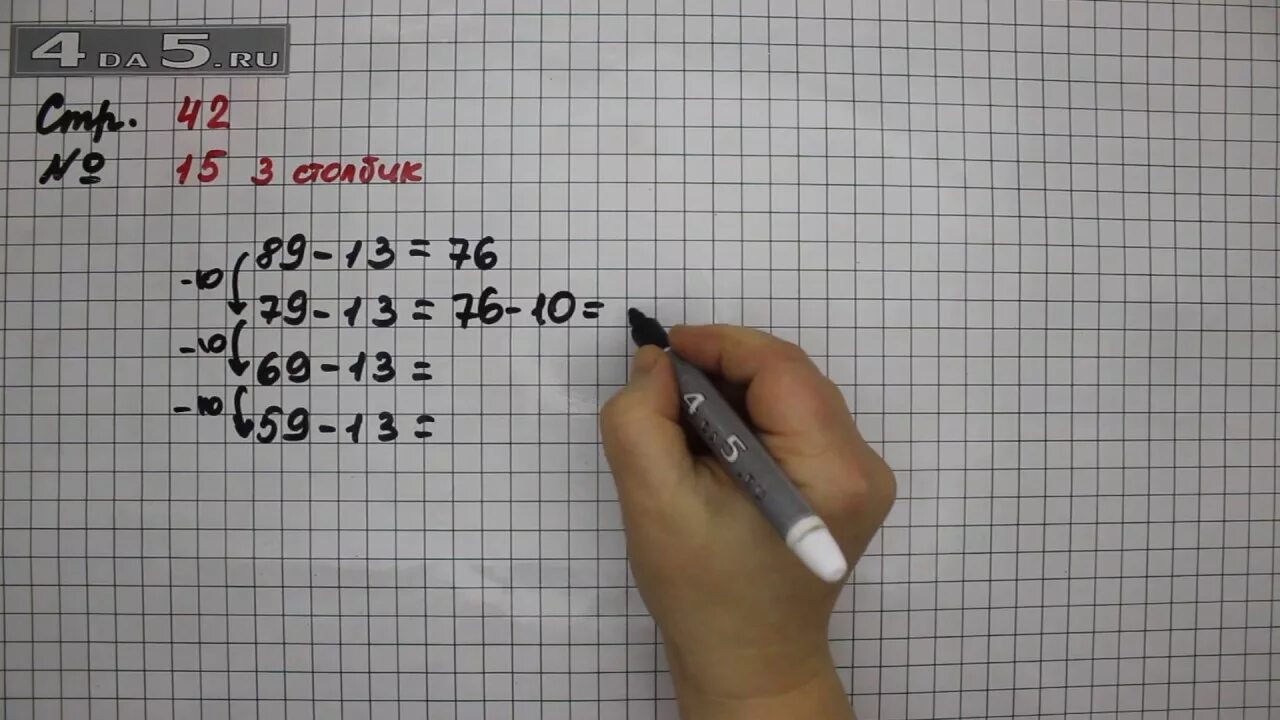 4 DA 5.RU
Стр. 42
№ 15 3 столбик
89-13=76
-10
79-13=76-10=
-10
69-13=
-10
59-13=
4 DA 5.RU